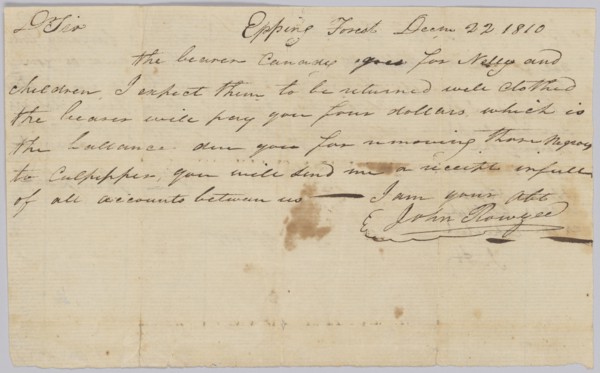 D Sir Epping Forest Decm 22 1810
the bearer Canady goes for Nelly and
children I expect them to be returned well clothed
the bearer will pay you four dollars which is
the ballance due you for removing those Negroes
to Culpepper, you will send me a receipt in full
of all accounts between us — I am your obt
John Rowzee